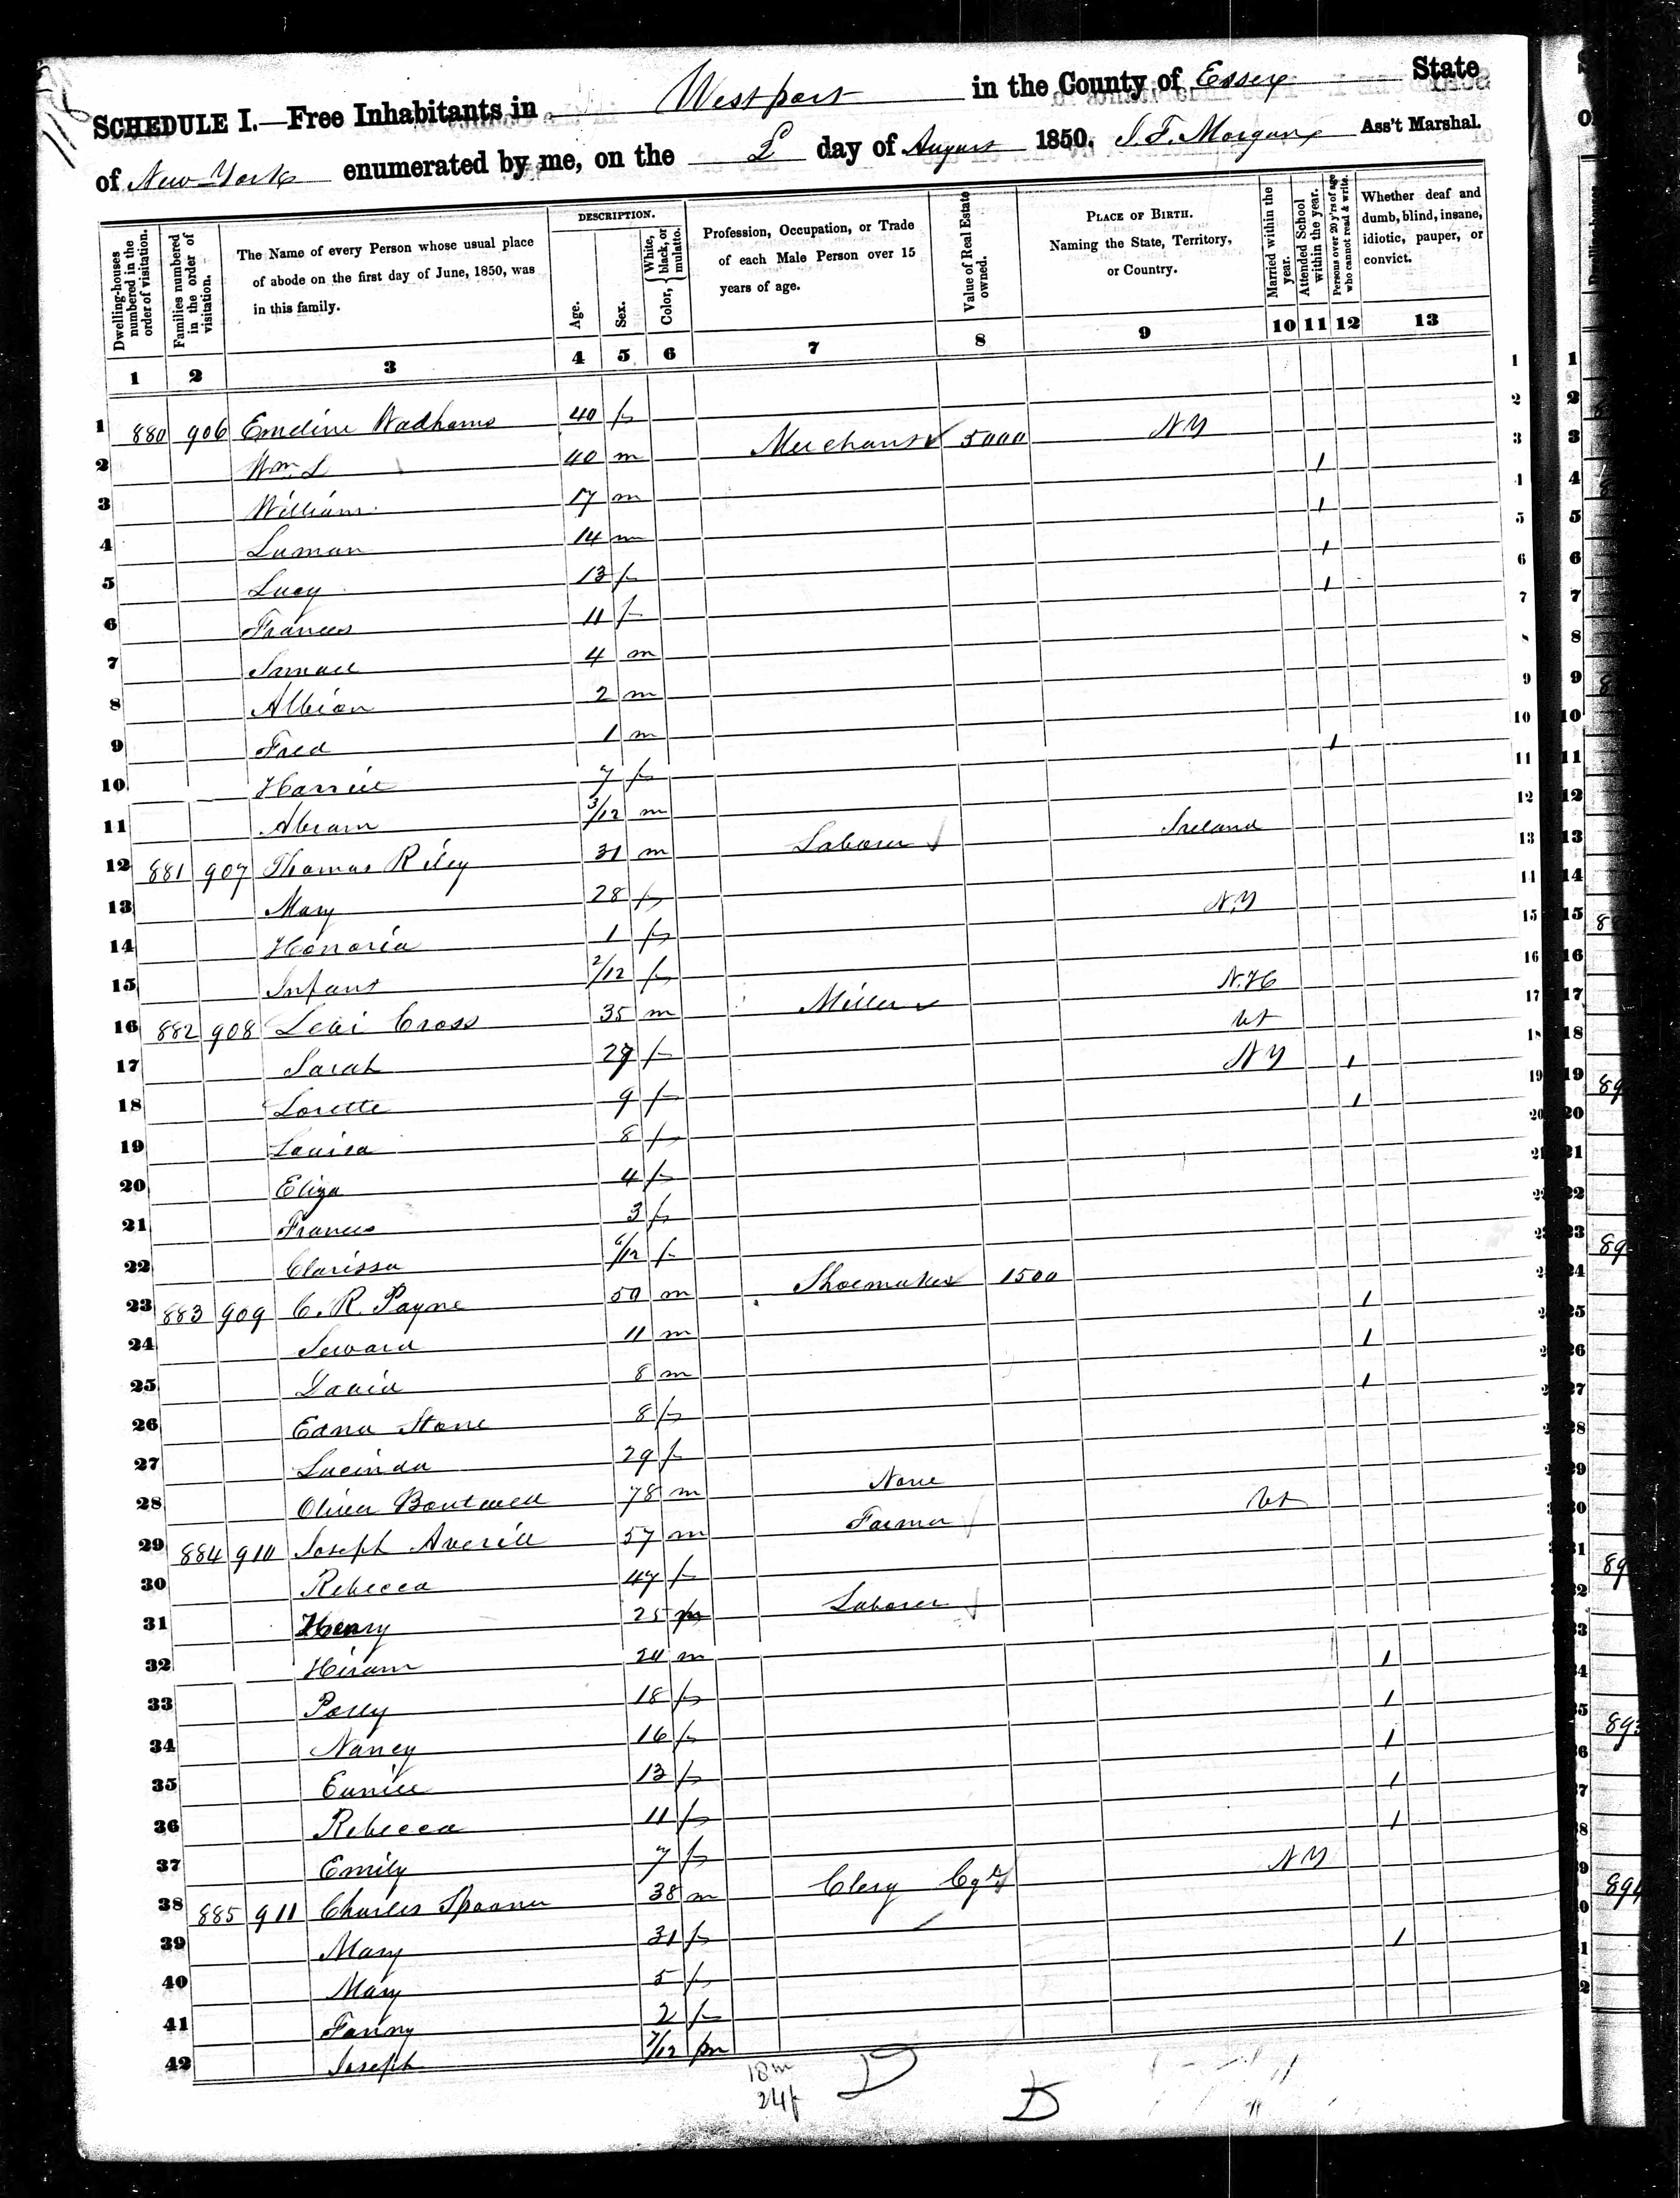 SCHEDULE I.—Free Inhabitants in Westport in the County of Essex State
of New York enumerated by me, on the 2 day of August 1850. Ass't Marshal.
Dwelling-houses numbered in the order of visitation.
Families numbered in the order of visitation.
The Name of every Person whose usual place of abode on the first day of June, 1850, was in this family.
DESCRIPTION.
Age.
Sex.
Color, { White, black, or mulatto.
Profession, Occupation, or Trade of each Male Person over 15 years of age.
Value of Real Estate owned.
PLACE OF BIRTH. Naming the State, Territory, or Country.
Married within the year.
Attended School within the year.
Persons over 20 y'rs of age who cannot read & write.
Whether deaf and dumb, blind, insane, idiotic, pauper, or convict.
1 2 3 4 5 6 7 8 9 10 11 12 13
1 880 906 Emeline Wadhams 40 f
2 Wm L 40 m Merchant 5000 NY
3 William 17 m 1
4 Luman 14 m 1
5 Lucy 13 f 1
6 Frances 11 f 1
7 Samuel 4 m
8 Albion 2 m
9 Fred 1 m
10 Harriet 7 f 1
11 Abram 3/12 m
12 881 907 Thomas Riley 31 m Laborer Ireland
13 Mary 28 f
14 Honoria 1 f N.Y
15 Infant 2/12 f
16 882 908 Levi Cross 35 m Miller N.H
17 Sarah 29 f Vt
18 Lorette 9 f NY 1
19 Louisa 8 f 1
20 Eliza 4 f
21 Frances 3 f
22 Clarissa 6/12 f
23 883 909 C. R. Payne 50 m Shoemaker 1500
24 Seward 11 m 1
25 David 8 m 1
26 Edna Stone 8 f 1
27 Lucinda 29 f
28 Oliver Boutwell 78 m None
29 884 910 Joseph Averill 57 m Farmer Vt
30 Rebecca 47 f
31 Henry 25 m Laborer
32 Hiram 20 m
33 Polly 18 f 1
34 Nancy 16 f 1
35 Eunice 13 f 1
36 Rebecca 11 f 1
37 Emily 7 f 1
38 885 911 Charles Spooner 38 m Clergy NY
39 Mary 31 f
40 Mary 5 f 1
41 Fanny 2 f
42 Joseph 7/12 m
18m
24f